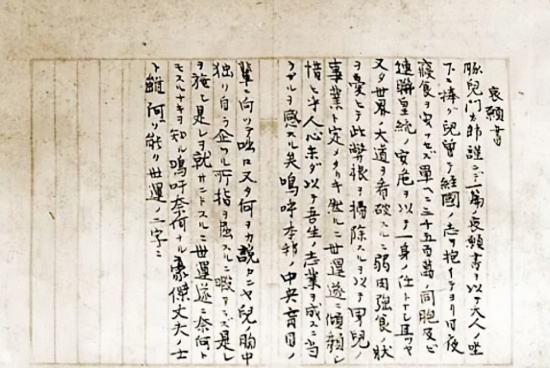 哀願書
豚児門太郎謹ンデ一篇ノ哀願書ヲ以テ大人ノ坐
下ニ捧グ児曽テ経国ノ志ヲ抱イテヨリ日夜
寝食ヲ安ンゼズ単ヘニ三千五百萬ノ同胞及ビ
連聯皇統ノ安危ヲ以テ一身ノ仕トナシ且ツヤ
又タ世界ノ大道ヲ看破スルニ弱肉強食ノ状
ヲ憂ヒテ此弊根ヲ掃除スルヲ以テ男児ノ
事業ト定メタリキ然ルニ世運遂ニ傾頽シ
惜ヒ乎人心未ダ以テ吾生ノ志業ヲ成スニ当
ラザルヲ感ズル矣嗚呼本邦ノ中央盲目ノ
輩ニ向ツテ咄々又タ何ヲカ説カンヤ児ノ胸中
独リ自ラ企ツル所指ヲ屈スルニ暇アラズ是レ
ヲ施シ是レヲ就サントスルニ世運遂ニ奈何ト
モスルナキヲ知ル嗚呼奈何ナル豪傑丈夫ノ士
ト雖何ゾ能ク世運ノ二字ニ